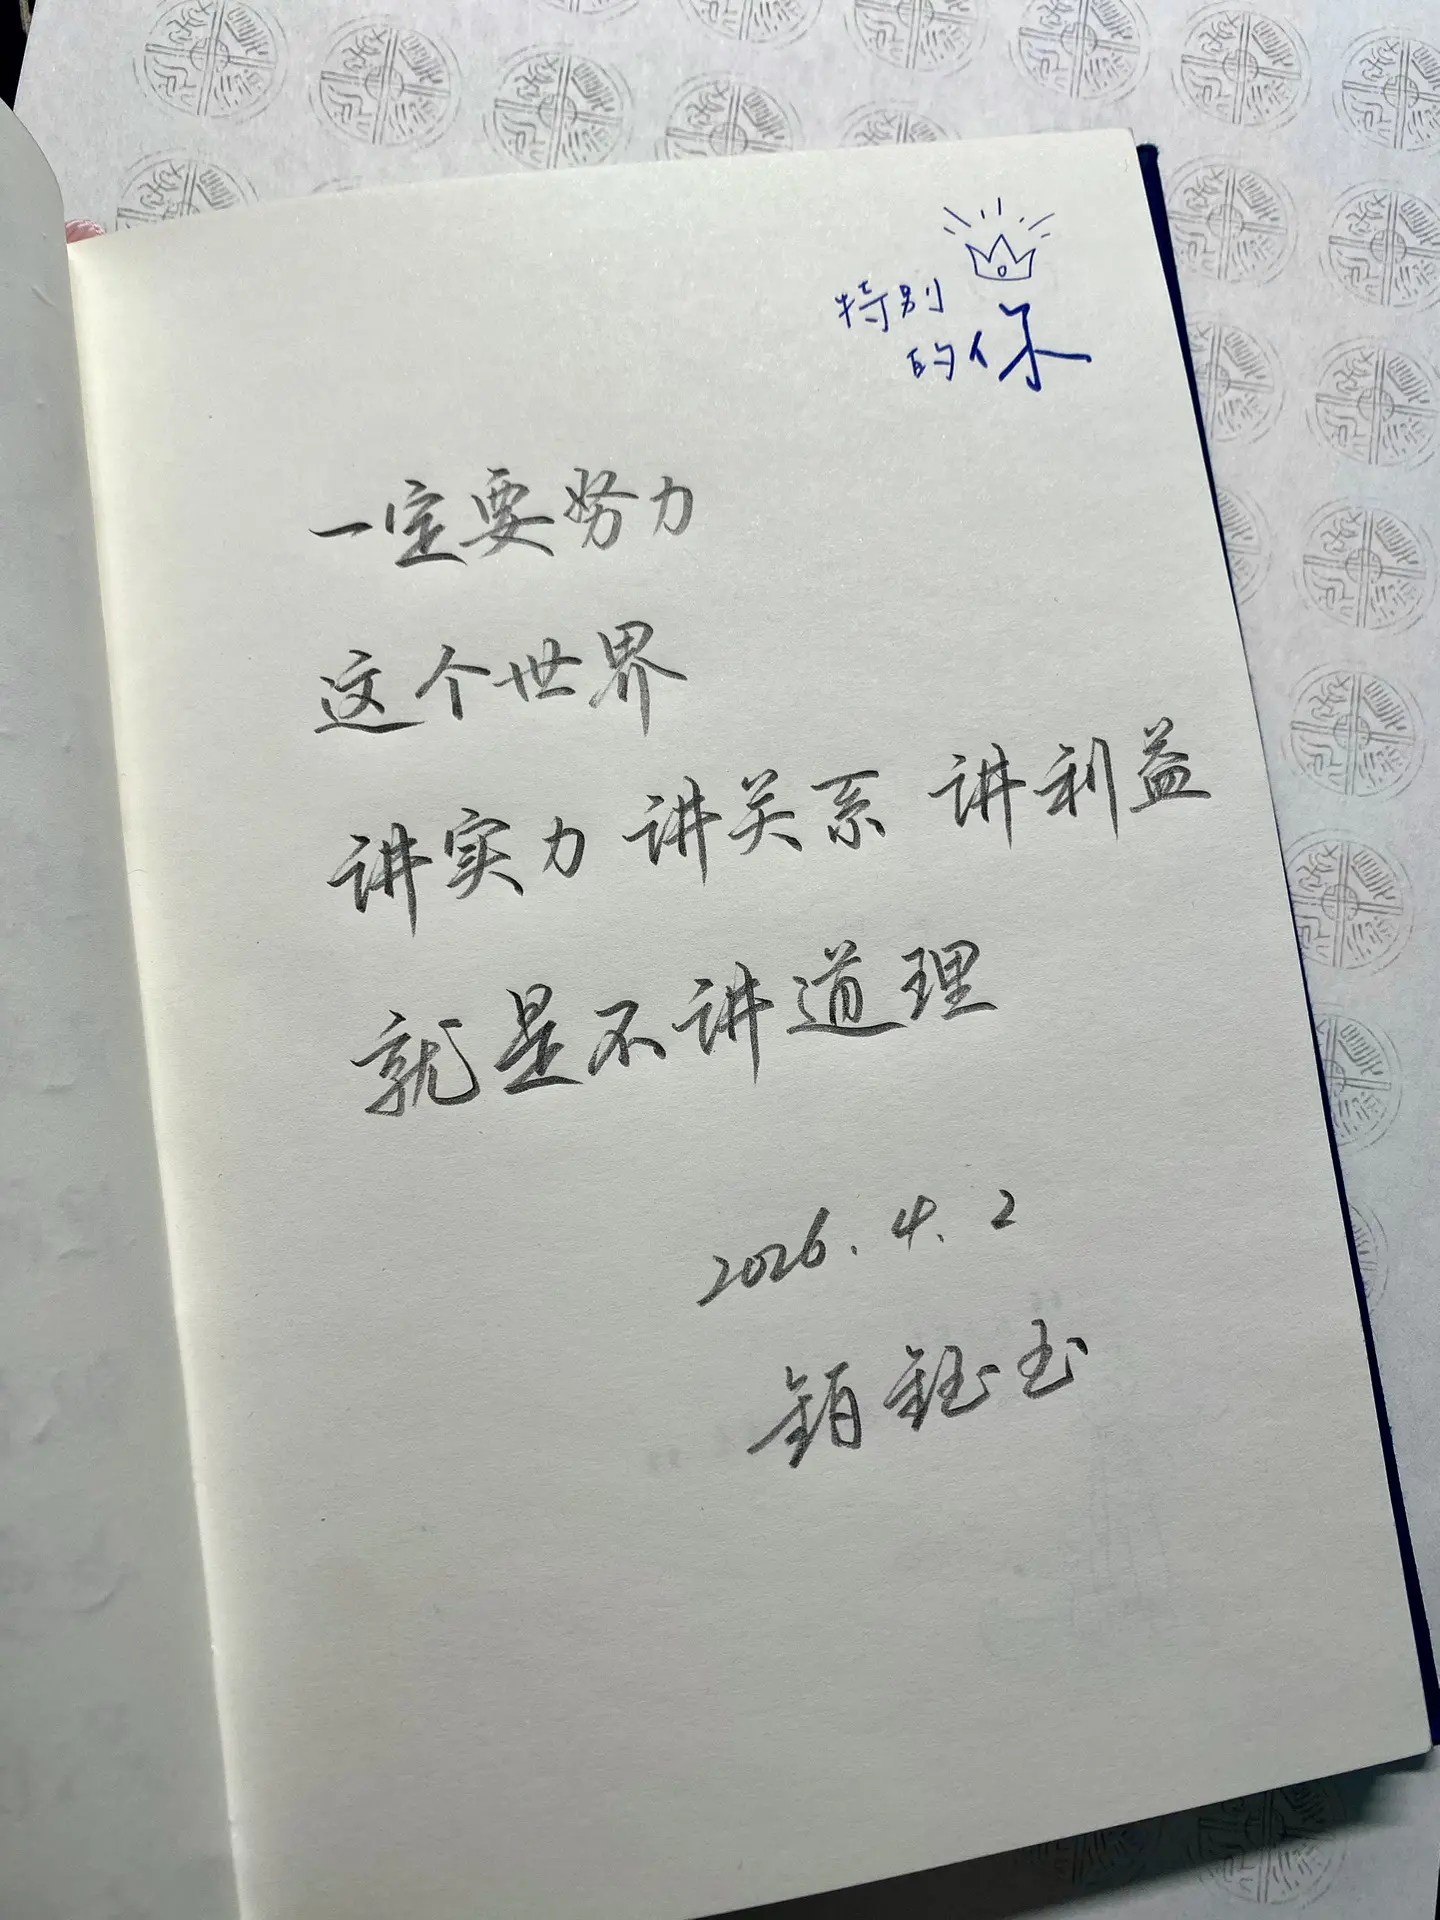 特别
的你
一定要努力
这个世界
讲实力 讲关系 讲利益
就是不讲道理
2026.4.2
钰玉